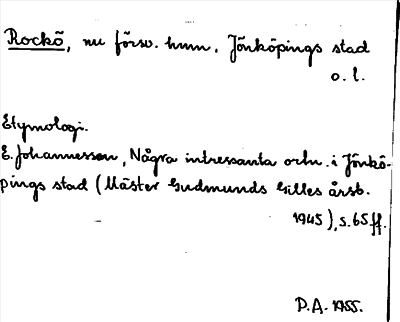 Rockö, nu försv. hmn, Jönköpings stad
o. l.
Etymologi.
E. Johannesson, Några intressanta ortn. i Jönkö-
pings stad (Mäster Gudmunds Gilles årsb.
1945), s. 65 ff.
D.A. 1955.